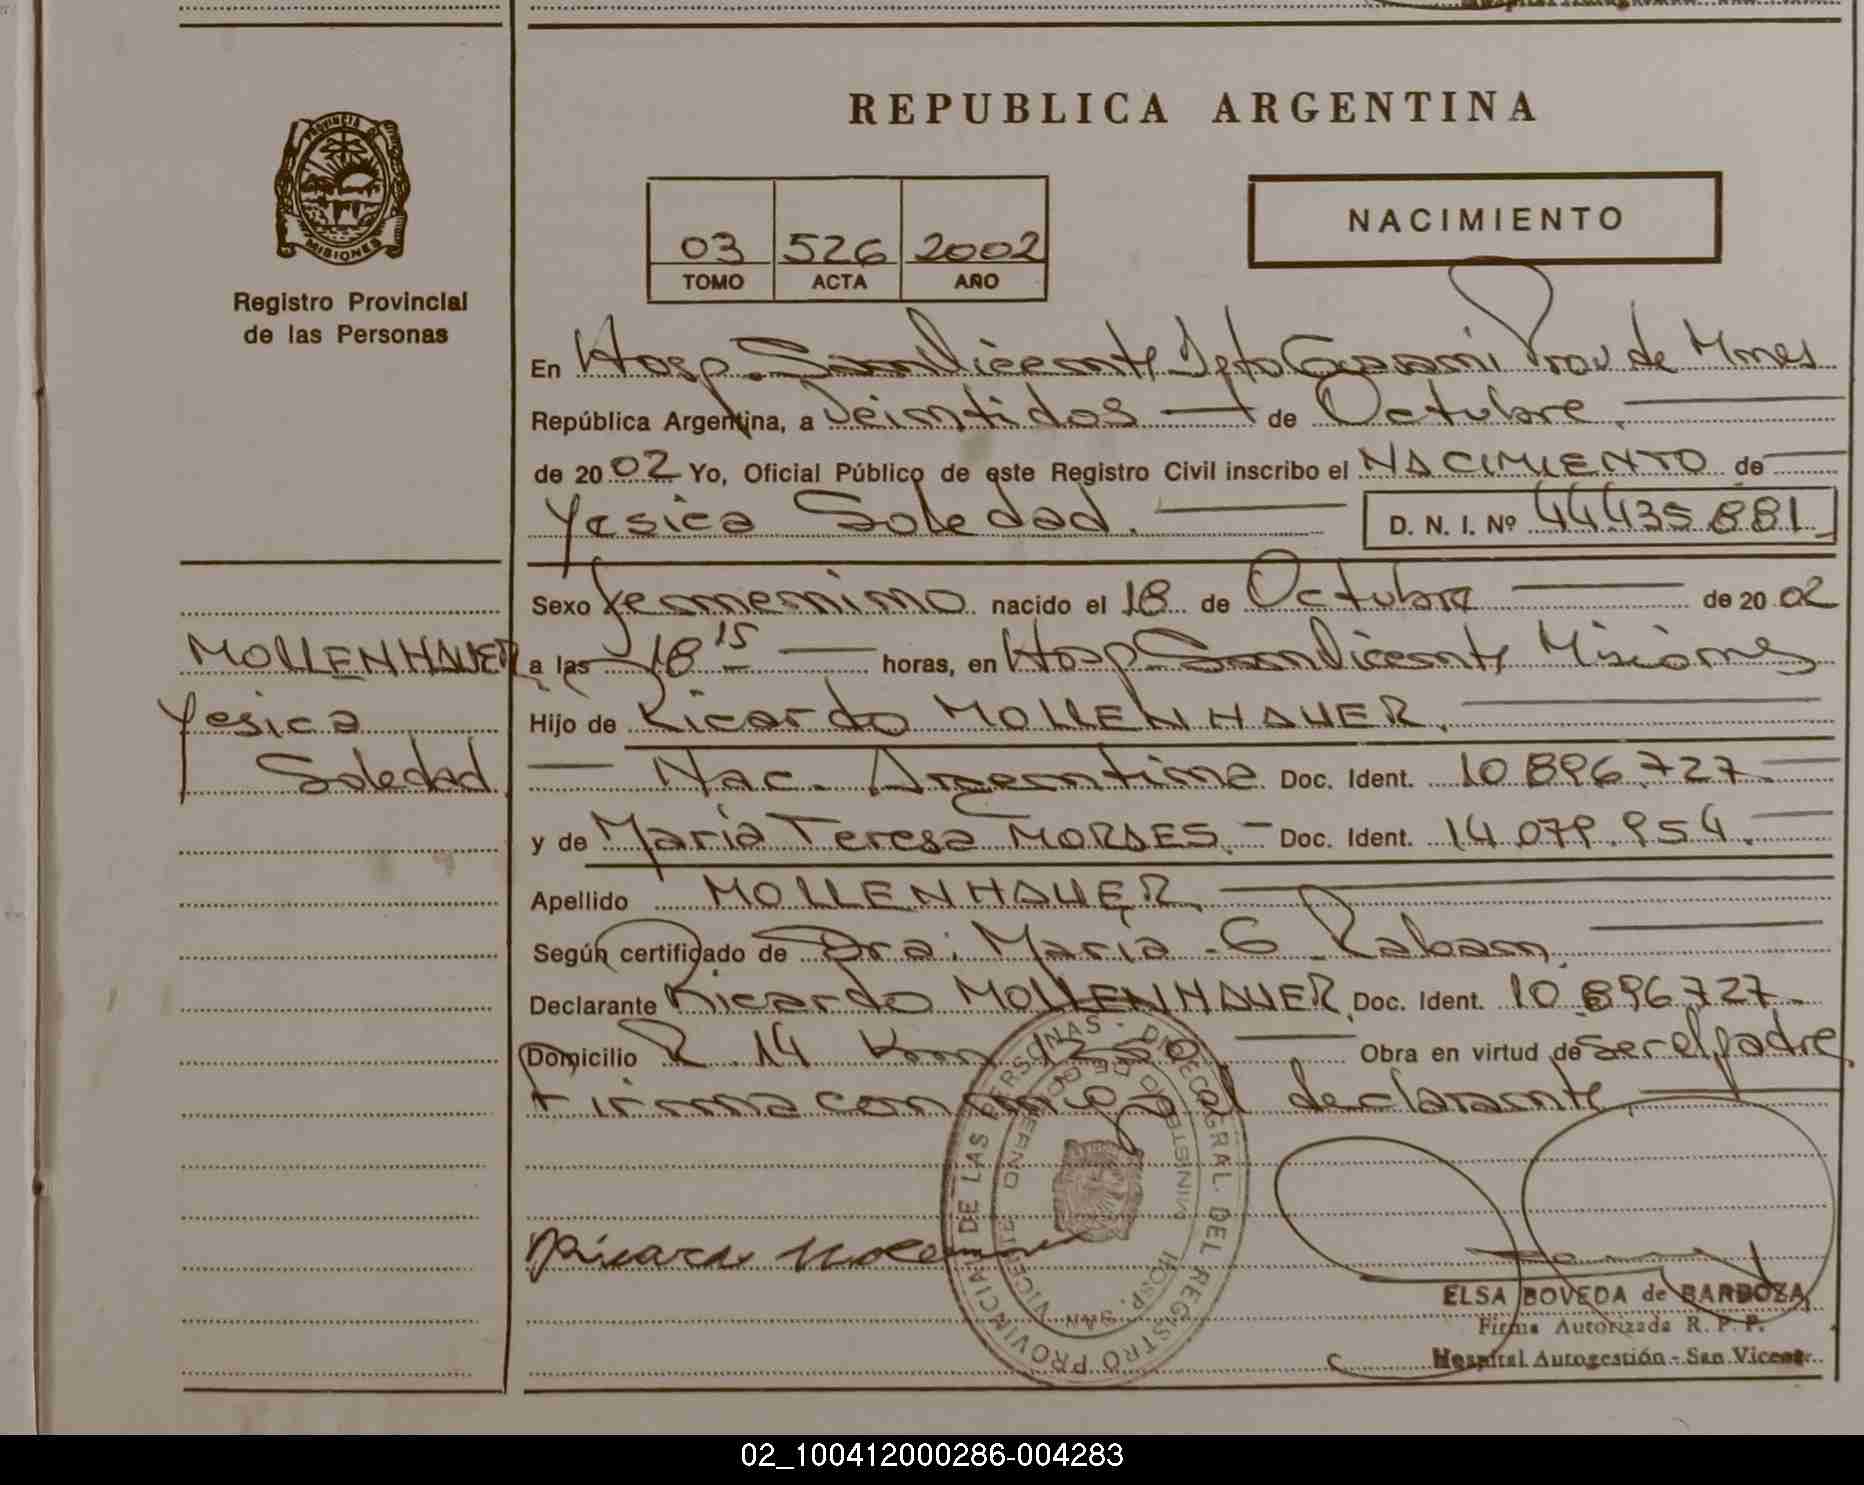 REPUBLICA ARGENTINA
PROVINCIA DE
MISIONES
Registro Provincial
de las Personas
03 526 2002
TOMO ACTA AÑO
NACIMIENTO
En Hosp. San Vicente Dpto Guarani Prov de Mnes
República Argentina, a Veintidos de Octubre
de 2002 Yo, Oficial Público de este Registro Civil inscribo el NACIMIENTO de
Yesica Soledad. D. N. I. Nº 44435881
Sexo femenino nacido el 18 de Octubre de 2002
MOLLENHAUER
Yesica
Soledad
a las 18 15 horas, en Hosp San Vicente Misiones
Hijo de Ricardo MOLLENHAUER.
Nac. Argentina Doc. Ident. 10 896.727
y de Maria Teresa MORAES. Doc. Ident. 14.079.954.
Apellido MOLLENHAUER
Según certificado de Dra. Maria G
Declarante Ricardo MOLLENHAUER Doc. Ident. 10 896.727
Domicilio R. 14 Km 1250 Obra en virtud de ser el padre
Firma conmigo el declarante
REGISTRO PROVINCIAL DE LAS PERSONAS - DIREC. GRAL. DEL
MINISTERIO DE GOBIERNO
HOSP. SAN VICENTE
ELSA BOVEDA de BARBOZA
Firma Autorizada R. P. P.
Hospital Autogestión - San Vicente
02_100412000286-004283